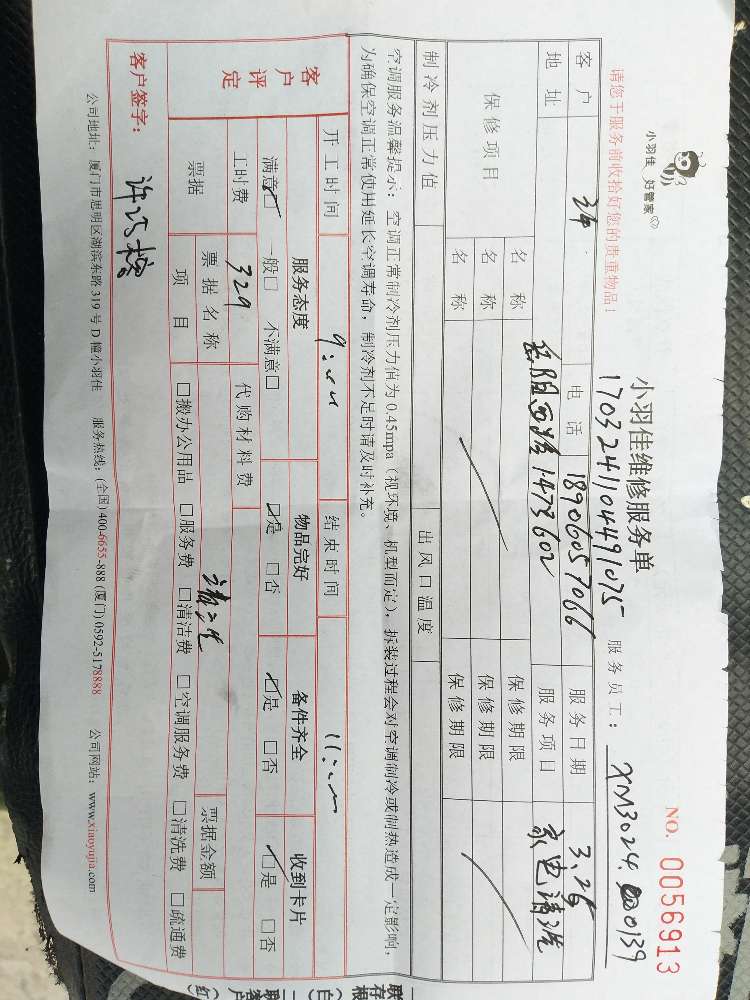 小羽佳 好管家
请您于服务前收拾好您的贵重物品！
小羽佳维修服务单
NO. 0056913
1703241104491075 服务员工：XM3024, 000139
客户 电话 18906057066 服务日期 3.25
地址 1473602 服务项目 家电清洗
保修项目 名称 保修期限
名称 保修期限
名称 保修期限
制冷剂压力值 出风口温度
空调服务温馨提示：空调正常制冷剂压力值为 0.45mpa（视环境、机型而定），拆装过程会对空调制冷或制热造成一定影响，
为确保空调正常使用延长空调寿命，制冷剂不足时请及时补充。
开工时间 结束时间
客户评定 服务态度 物品完好 备件齐全 收到卡片
满意☑ 一般□ 不满意□ ☑是 □否 ☑是 □否 ☑是 □否
工时费 329 代购材料费 清洗
票据 票据名称 票据金额
项目 □搬办公用品 □服务费 □清洁费 □空调服务费 □清洗费 □疏通费
客户签字：
公司地址：厦门市思明区湖滨东路 319 号 D 幢小羽佳 服务热线：(全国) 400-6655-888 (厦门) 0592-5178888 公司网站：www.xiaoyujia.com